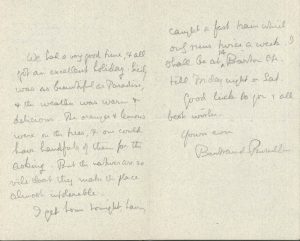 We had a very good time, & all
got an excellent holiday. Sicily
was as beautiful as Paradise,
& the weather was warm &
delicious. The oranges & lemons
were on the trees, & one could
have handfuls of them for the
asking. But the natives are so
vile that they make the place
almost intolerable.
I got home tonight, having
caught a fast train which
only runs twice a week. I
shall be at Barton St.
till Friday night or Sat
Good luck to you & all
best wishes.
Yours ever
Bertrand Russell